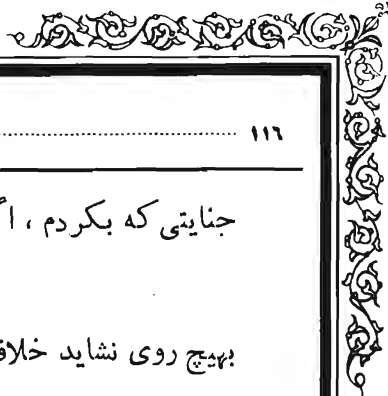 ۱۱۶
جنایتی که بکردم ،
بهیچ روی نشاید